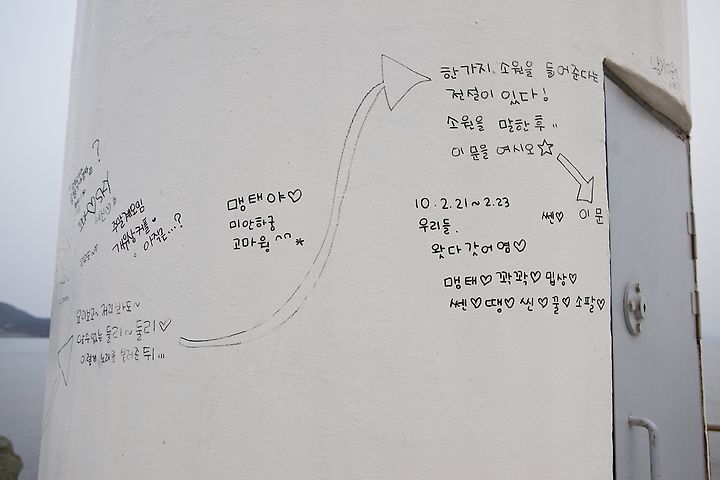 한가지. 소원을 들어준다는
전설이 있다!
소원을 말한 후..
이 문을 여시오☆
이 문
쎈♡
10.2.21~2.23
우리들.
왔다 갔어염♡
맹태♡ 꽉꽉♡ 밉상♡
쎈♡ 땡♡ 씬♡ 꿀♡ 소팔♡
맹태야♡
미안하궁
고마웡^^*
요리보고~ 저리 봐도~
알수없는 둘리~ 둘리♡
이렇게 노래를 불러준 뒤...